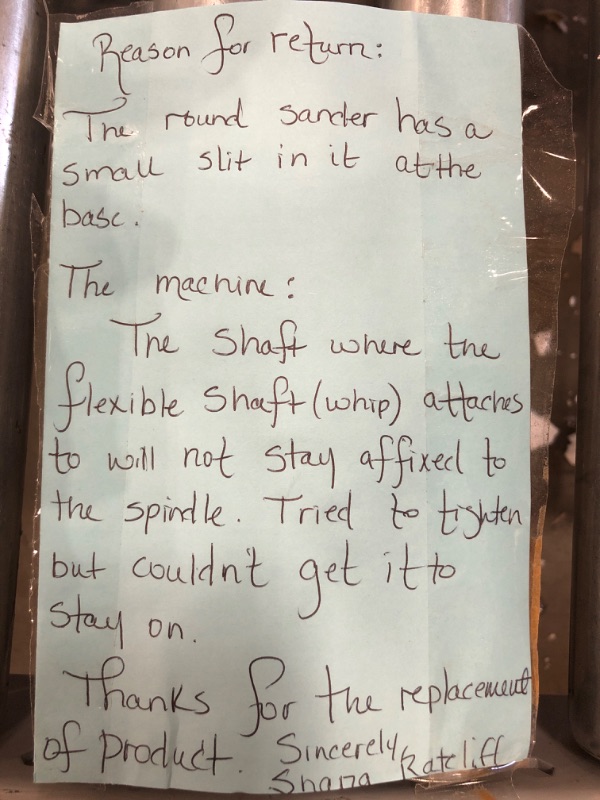 Reason for return:
The round sander has a
small slit in it at the
base.
The machine:
The shaft where the
flexible shaft (whip) attaches
to will not stay affixed to
the spindle. Tried to tighten
but couldn't get it to
stay on.
Thanks for the replacement
of product. Sincerely,
Ratcliff